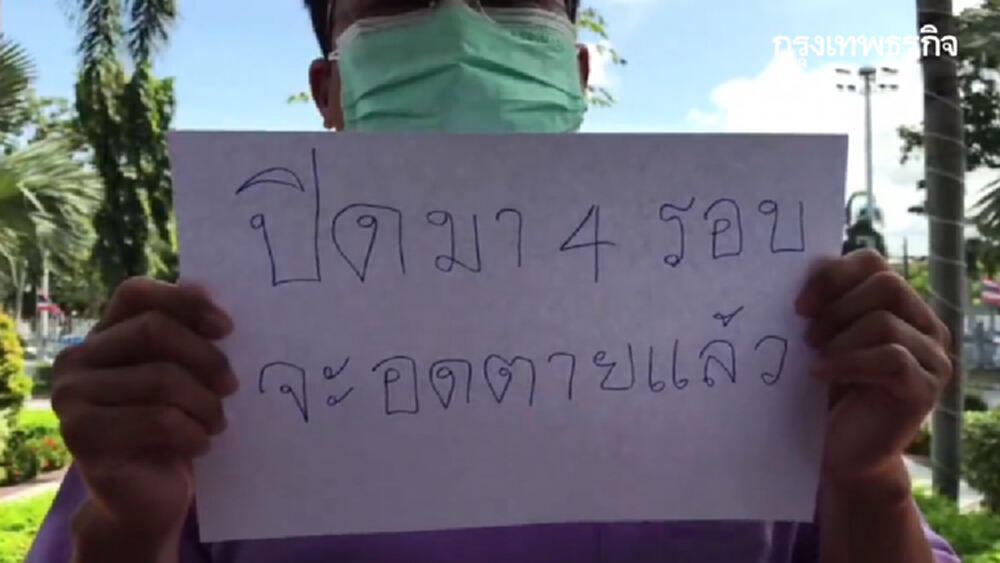 กรุงเทพธุรกิจ
ปิดมา 4 รอบ
จะอดตายแล้ว